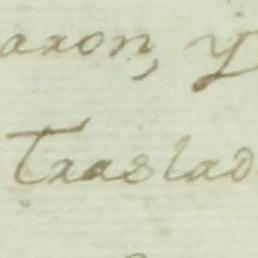 axon, y
Traslad